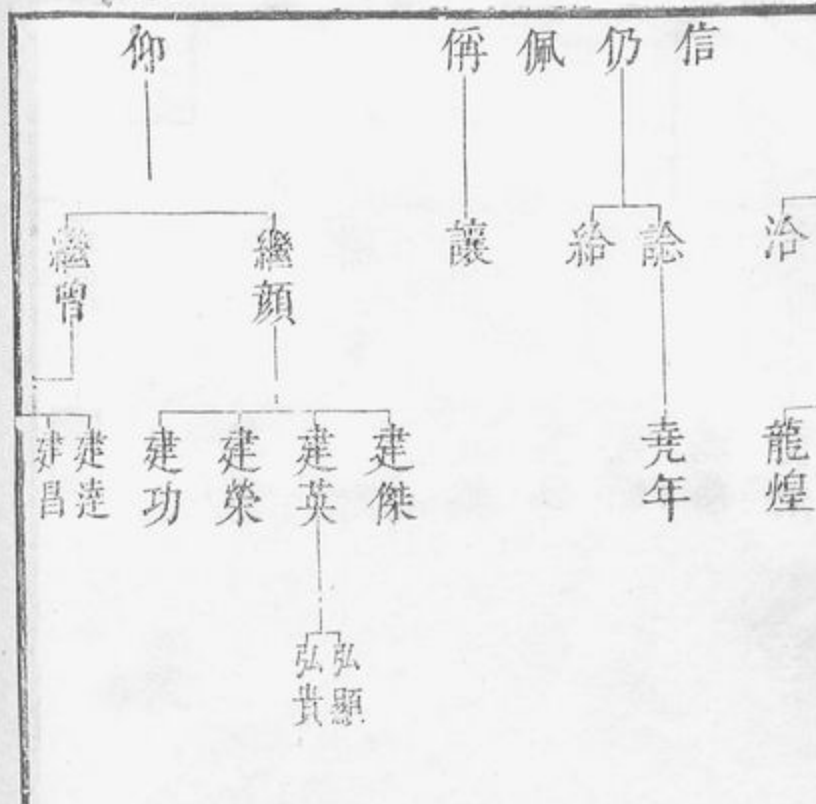 信
仍
佩
偁
仰
洽
諗
給
讓
繼顏
繼曾
龍煌
堯年
建傑
建英
建榮
建功
建達
建昌
弘顯
弘貴